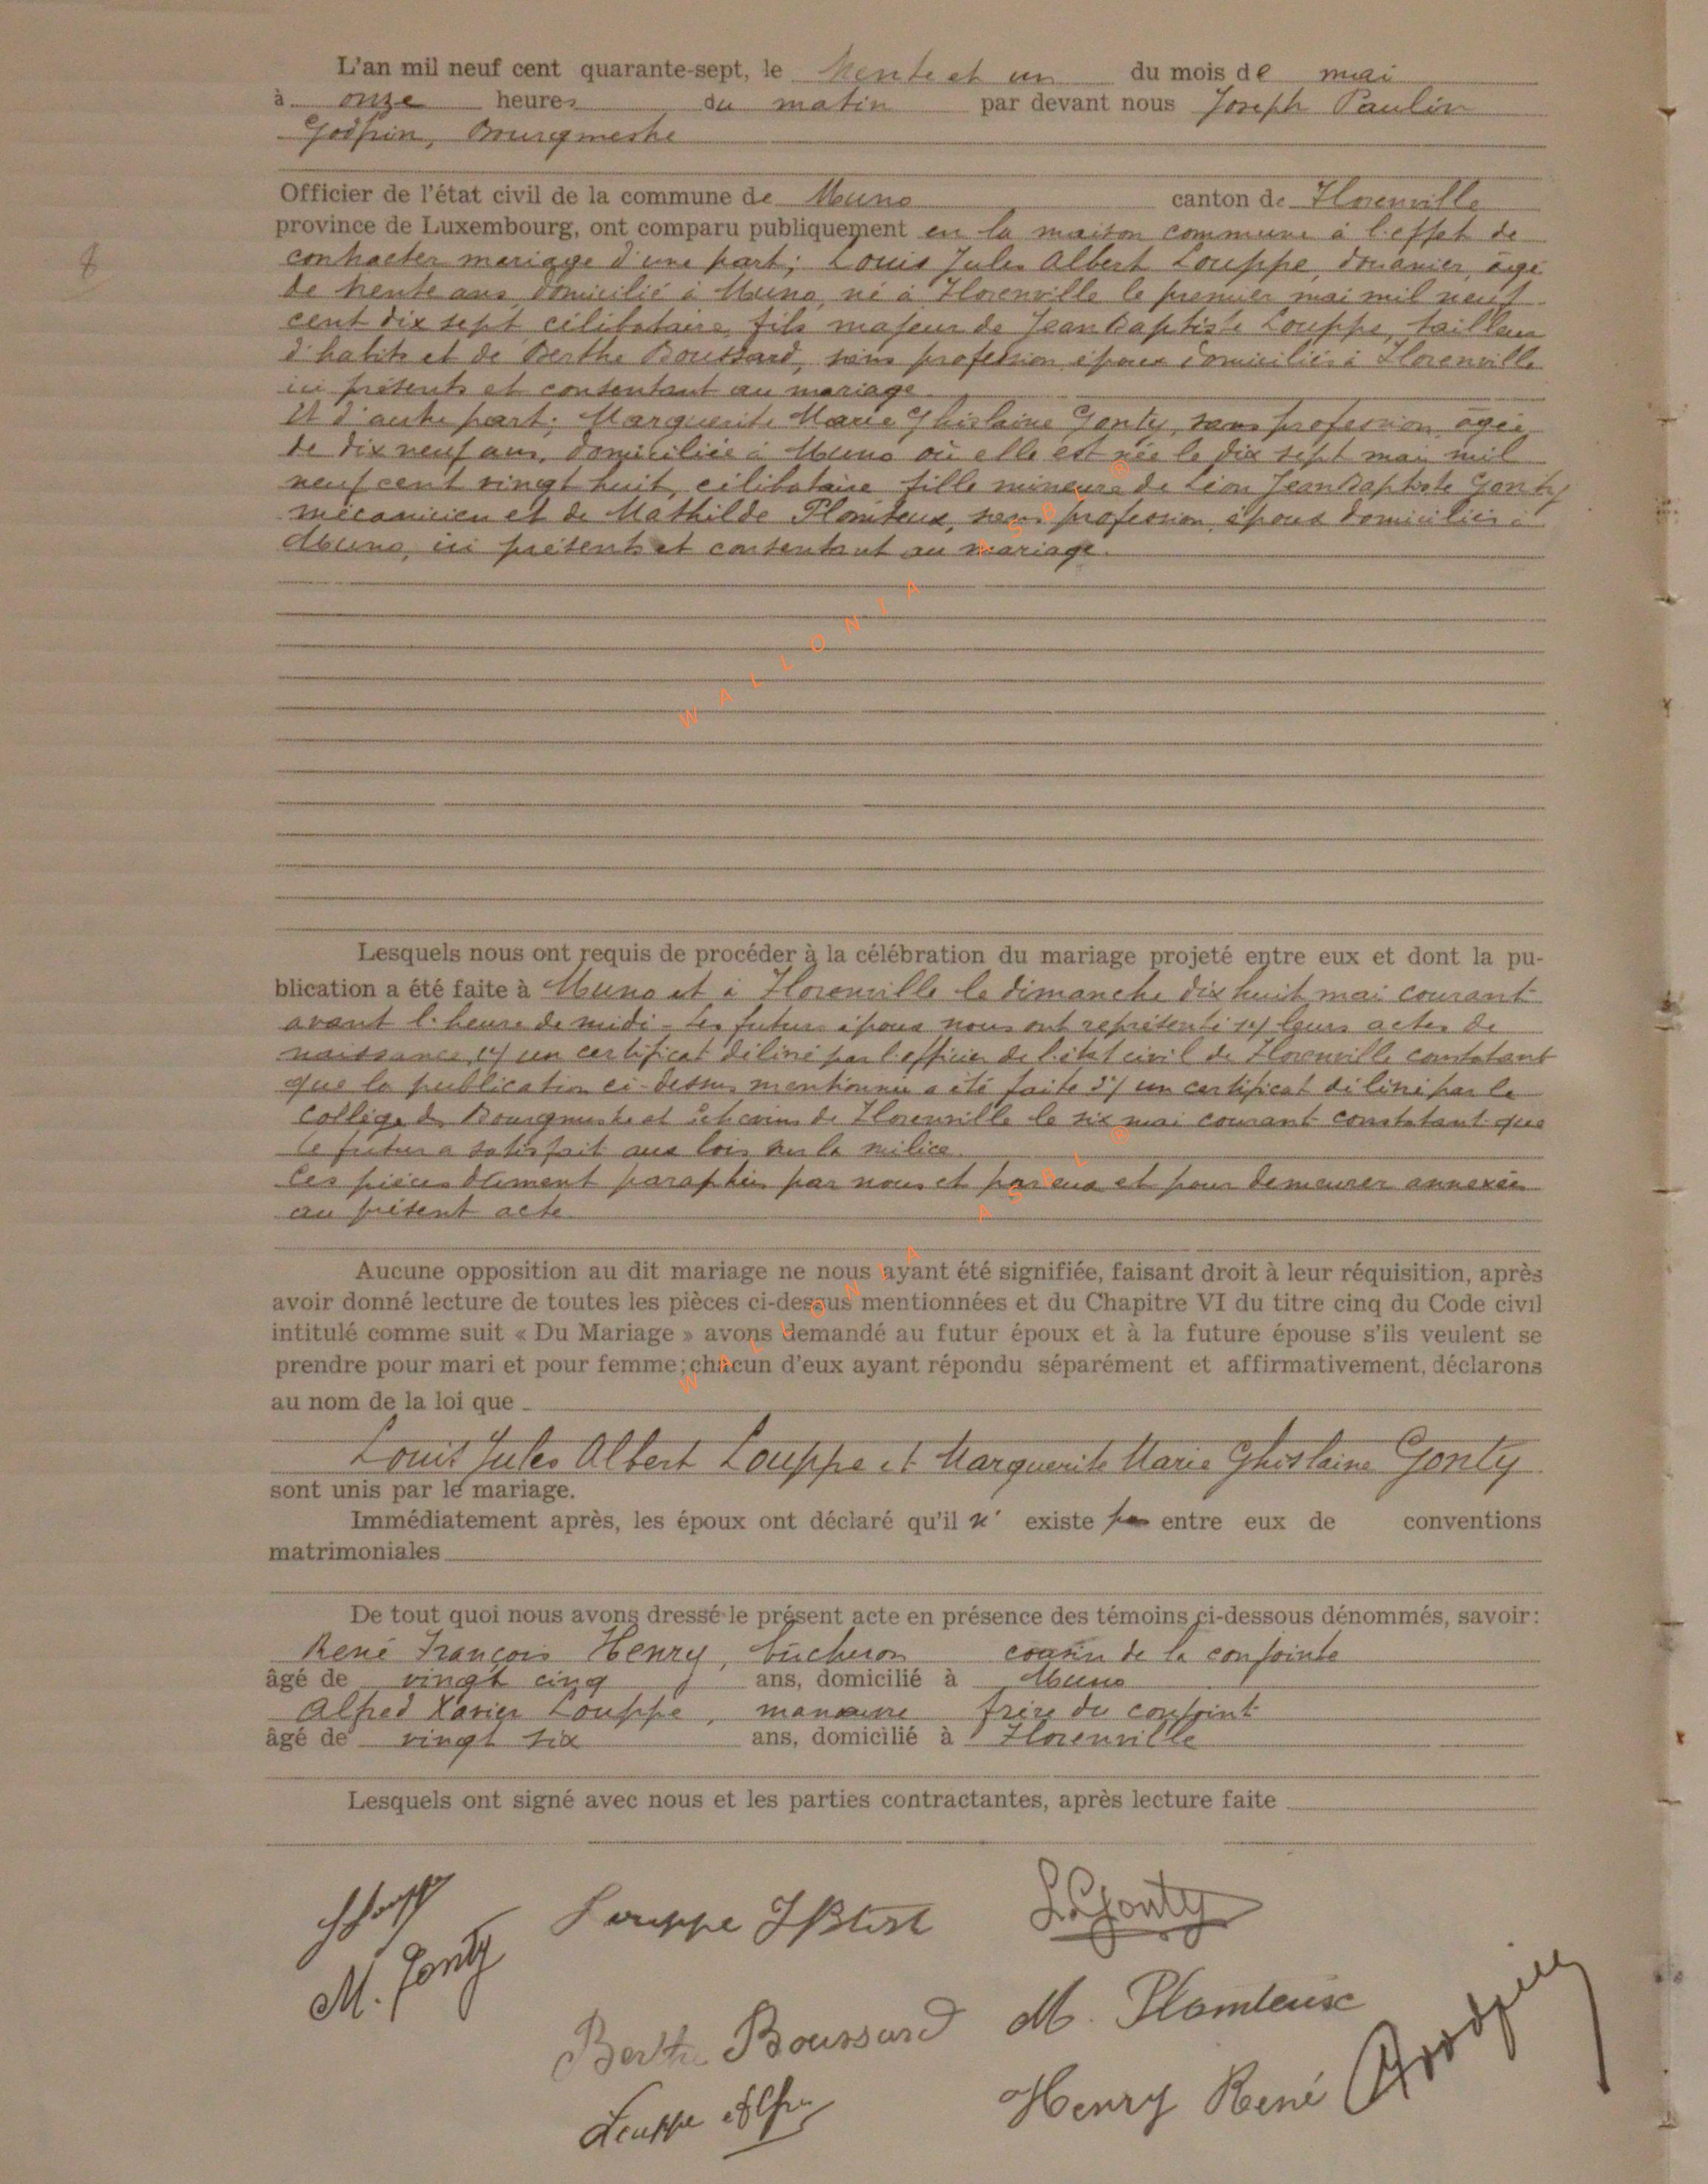 L'an mil neuf cent quarante-sept, le trente et un du mois de mai
à onze heures du matin par devant nous Joseph Paulin
Godfrin, Bourgmestre
Officier de l'état civil de la commune de Muno canton de Florenville
province de Luxembourg, ont comparu publiquement en la maison commune à l'effet de
8
contracter mariage d'une part; Louis Jules Albert Louppe, douanier, âgé
de trente ans, domicilié à Muno, né à Florenville le premier mai mil neuf
cent dix sept, célibataire, fils majeur de Jean Baptiste Louppe, tailleur
d'habits et de Berthe Boussard, sans profession, époux domiciliés à Florenville
ici présents et consentant au mariage.
Et d'autre part; Marguerite Marie Ghislaine Gonty, sans profession, âgée
de dix neuf ans, domiciliée à Muno où elle est née le dix sept mars mil
neuf cent vingt huit, célibataire fille mineure de Léon Jean Baptiste Gonty,
mécanicien et de Mathilde Plomteux, sans profession, époux domiciliés à
Muno, ici présents et consentant au mariage.
WALLONIA ASBL ®
Lesquels nous ont requis de procéder à la célébration du mariage projeté entre eux et dont la pu-
blication a été faite à Muno et à Florenville le dimanche dix huit mai courant
avant l'heure de midi - Les futurs époux nous ont représenté 1°/ leurs actes de
naissance 2°/ un certificat délivré par l'officier de l'état civil de Florenville constatant
que la publication ci-dessus mentionnée a été faite 3°/ un certificat délivré par le
collège des Bourgmestre et Echevins de Florenville le six mai courant constatant que
le futur a satisfait aux lois sur la milice.
Ces pièces dûment paraphées par nous et par eux et pour demeurer annexées
au présent acte.
WALLONIA ASBL ®
Aucune opposition au dit mariage ne nous ayant été signifiée, faisant droit à leur réquisition, après
avoir donné lecture de toutes les pièces ci-dessus mentionnées et du Chapitre VI du titre cinq du Code civil
intitulé comme suit « Du Mariage » avons demandé au futur époux et à la future épouse s'ils veulent se
prendre pour mari et pour femme; chacun d'eux ayant répondu séparément et affirmativement, déclarons
au nom de la loi que
Louis Jules Albert Louppe et Marguerite Marie Ghislaine Gonty
sont unis par le mariage.
Immédiatement après, les époux ont déclaré qu'il n' existe pas entre eux de conventions
matrimoniales
De tout quoi nous avons dressé le présent acte en présence des témoins ci-dessous dénommés, savoir:
René François Henry, bûcheron cousin de la conjointe
âgé de vingt cinq ans, domicilié à Muno
Alfred Xavier Louppe, manœuvre frère du conjoint
âgé de vingt six ans, domicilié à Florenville
Lesquels ont signé avec nous et les parties contractantes, après lecture faite
Louppe JBtist L. Gonty
M. Gonty
Berthe Boussard M. Plomteux
Louppe Alfred Henry René Godfrin